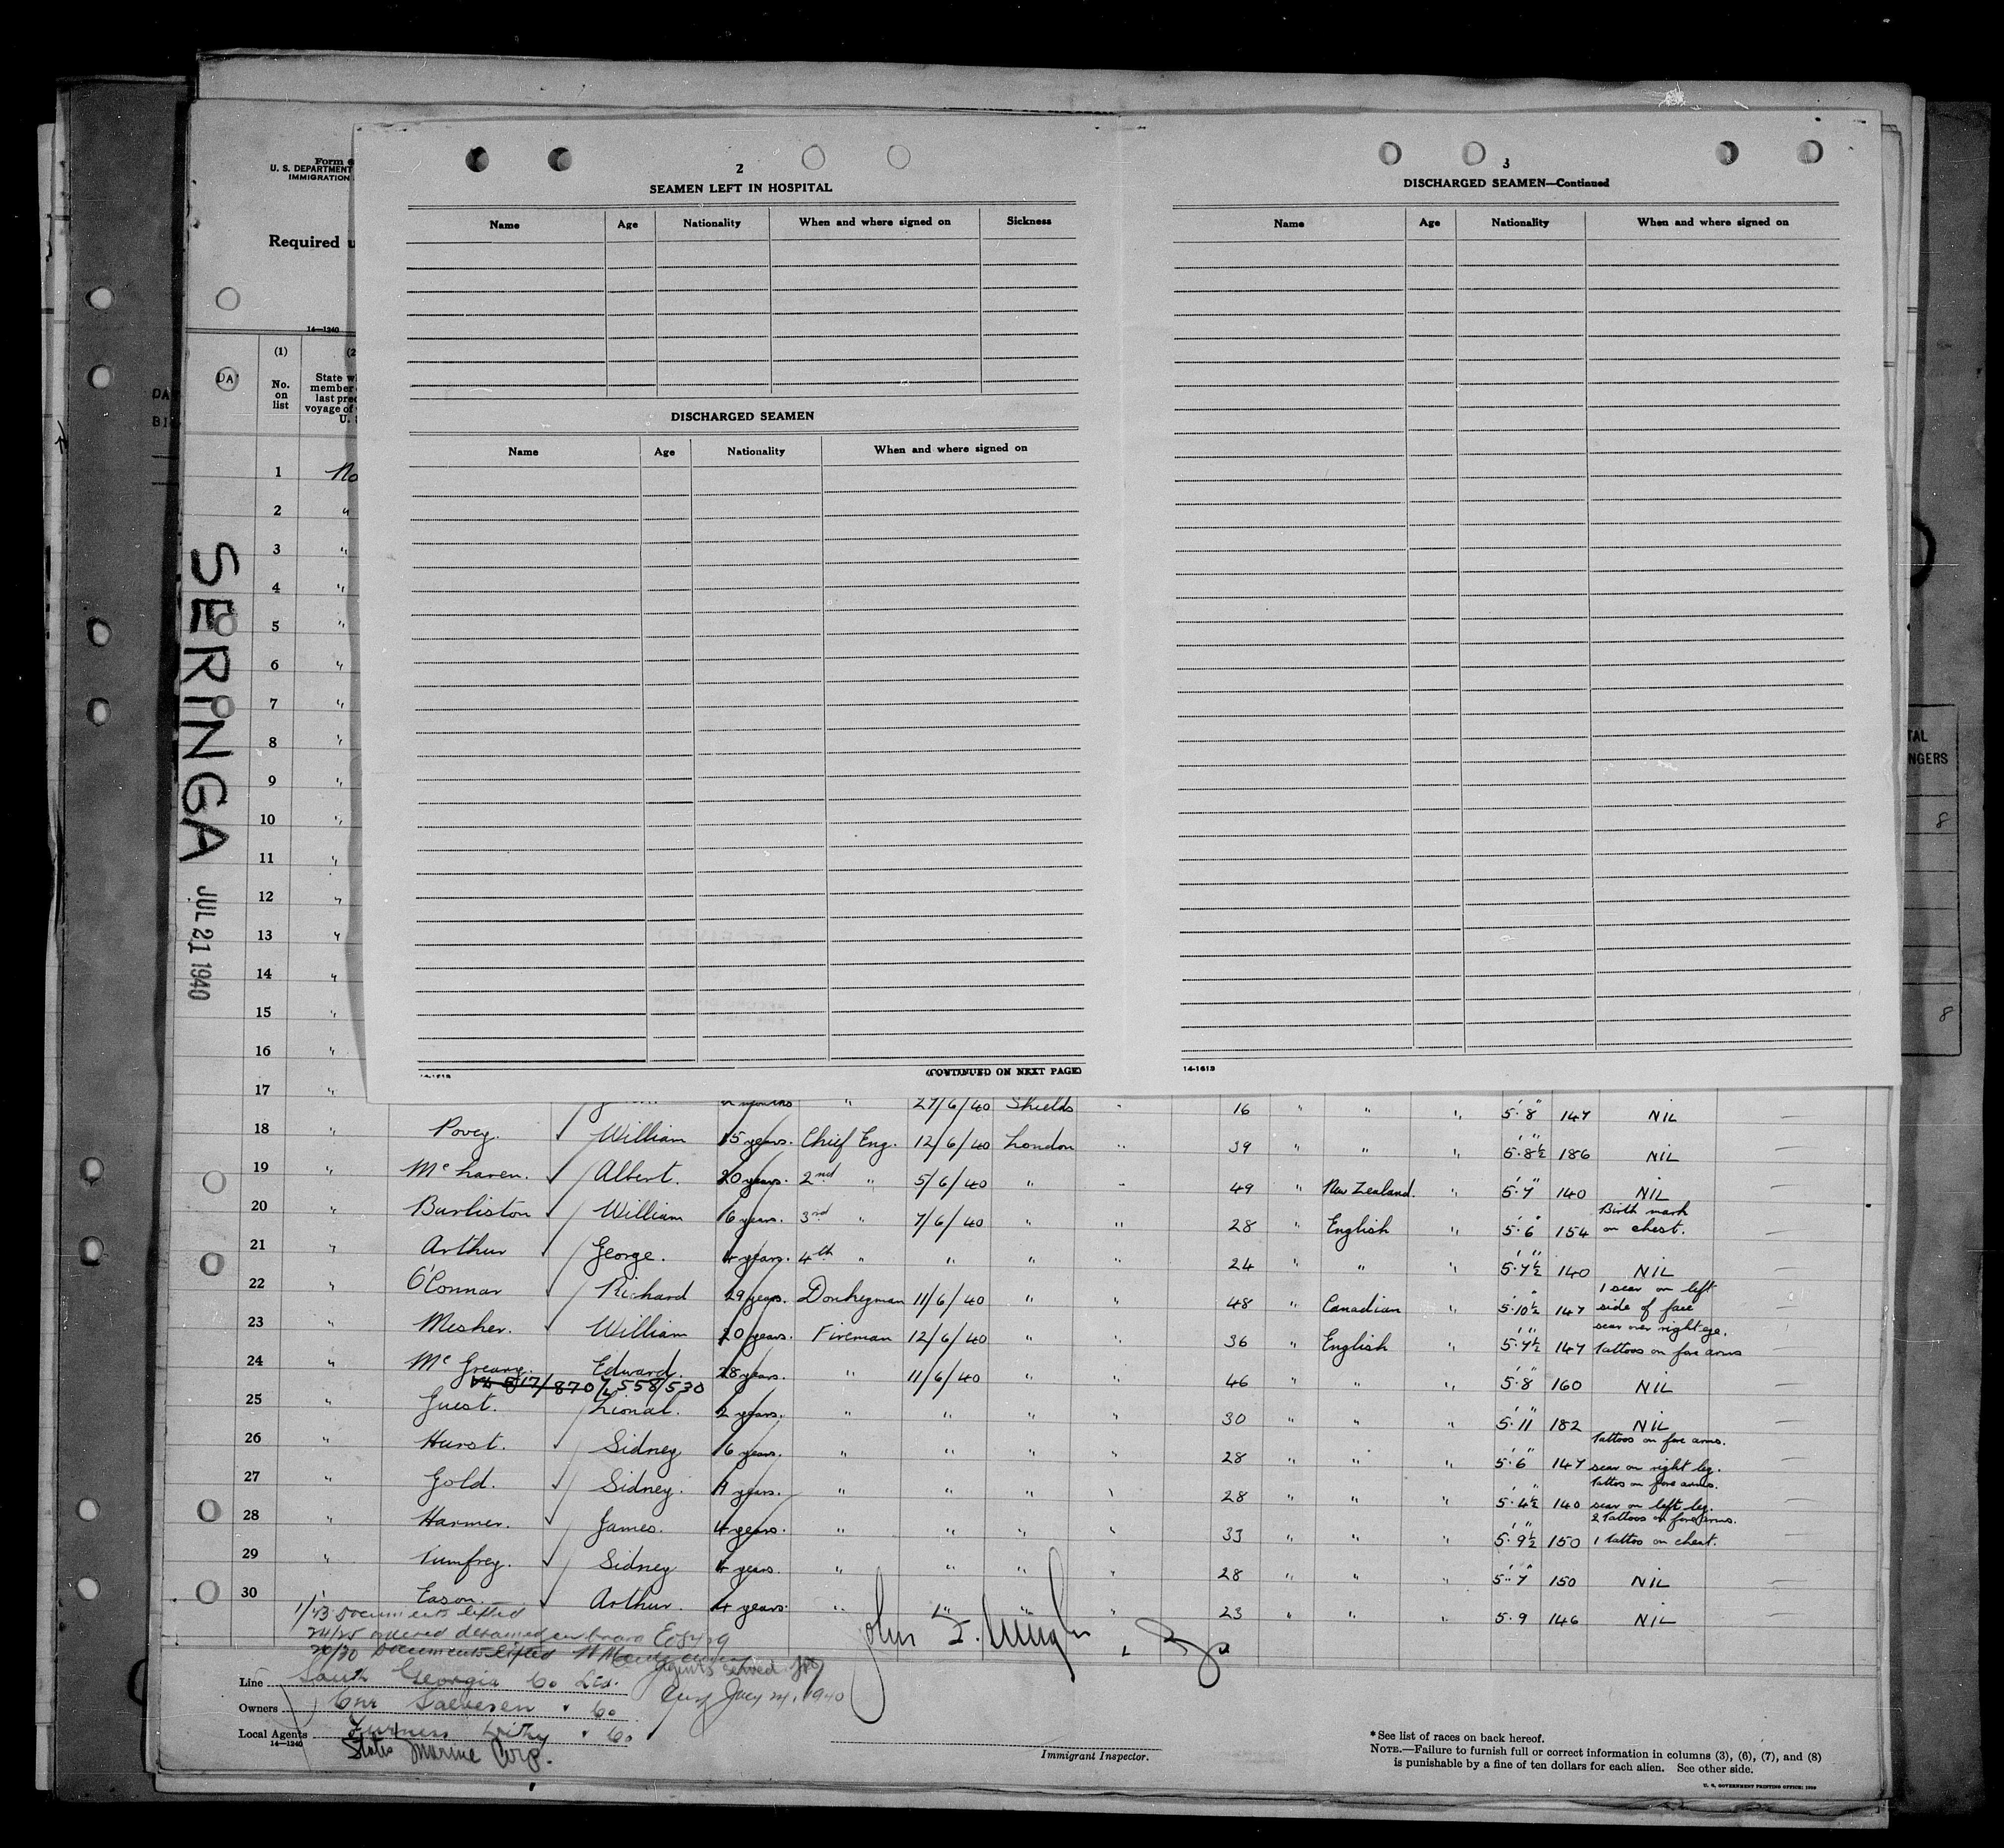 Form
U. S. DEPARTMENT
IMMIGRATION
Required
14—1240
DA
(1)
No.
on
list
State
member
last
voyage of
U.
SERINGA
JUL 21 1940
2
SEAMEN LEFT IN HOSPITAL
Name Age Nationality When and where signed on Sickness
DISCHARGED SEAMEN
Name Age Nationality When and where signed on
(CONTINUED ON NEXT PAGE)
3
DISCHARGED SEAMEN—Continued
Name Age Nationality When and where signed on
14-1613
1 No
2 "
3 "
4 "
5 "
6 "
7 "
8 "
9 "
10 "
11 "
12 "
13 "
14 "
15 "
16 "
17 " months " 27/6/40 Shields " 16 " " " 5'8" 147 NIL
18 " Povey. William 15 years. Chief Eng. 12/6/40 London " 39 " " " 5'8½" 186 NIL —
19 " Albert. 20 years. 2nd " 5/6/40 " " 49 " New Zealand. " 5'7" 140 NIL —
20 " Burliston William 6 years. 3rd " 7/6/40 " " 28 " English " 5'6" 154 Birth mark on chest. —
21 " Arthur George. 4 years. 4th " " " " 24 " " " 5'7½" 140 NIL —
22 " O'Connor Richard 29 years. Donkeyman 11/6/40 " " 48 " Canadian " 5'10½" 147 1 scar on left side of face —
23 " Mesher. William 20 years. Fireman 12/6/40 " " 36 " English " 5'7½" 147 scar over right eye. Tattoos on fore arms —
24 " Edward. 28 years. " 11/6/40 " " 46 " " " 5'8" 160 NIL —
558/530
25 " Guest. Lional. 2 years. " " " " 30 " " " 5'11" 182 NIL —
26 " Hurst. Sidney 6 years. " " " " 28 " " " 5'6" 147 Tattoos on fore arms. scar on right leg. —
27 " Gold. Sidney. 9 years. " " " " 28 " " " 5'4½" 140 Tattoos on fore arms. scar on left leg. —
28 " Harmer. James. 4 years. " " " " 33 " " " 5'9½" 150 2 Tattoos on fore arms. 1 Tattoo on chest. —
29 " Tumfrey. Sidney 4 years. " " " " 28 " " " 5'7" 150 NIL —
30 " Eason. Arthur. 4 years. " " " " 23 " " " 5'9 146 NIL —
1/23 Documents lifted
24/25 ordered detained on board
26/30 Documents lifted
Line South Georgia Co Ltd.
Owners Chr Salvesen & Co
Local Agents Furness Withy & Co
14—1240
States Marine Corp.
Agents served
John F.
Immigrant Inspector.
* See list of races on back hereof.
NOTE.—Failure to furnish full or correct information in columns (3), (6), (7), and (8)
is punishable by a fine of ten dollars for each alien. See other side.
U. S. GOVERNMENT PRINTING OFFICE:
TAL
NGERS
8
8